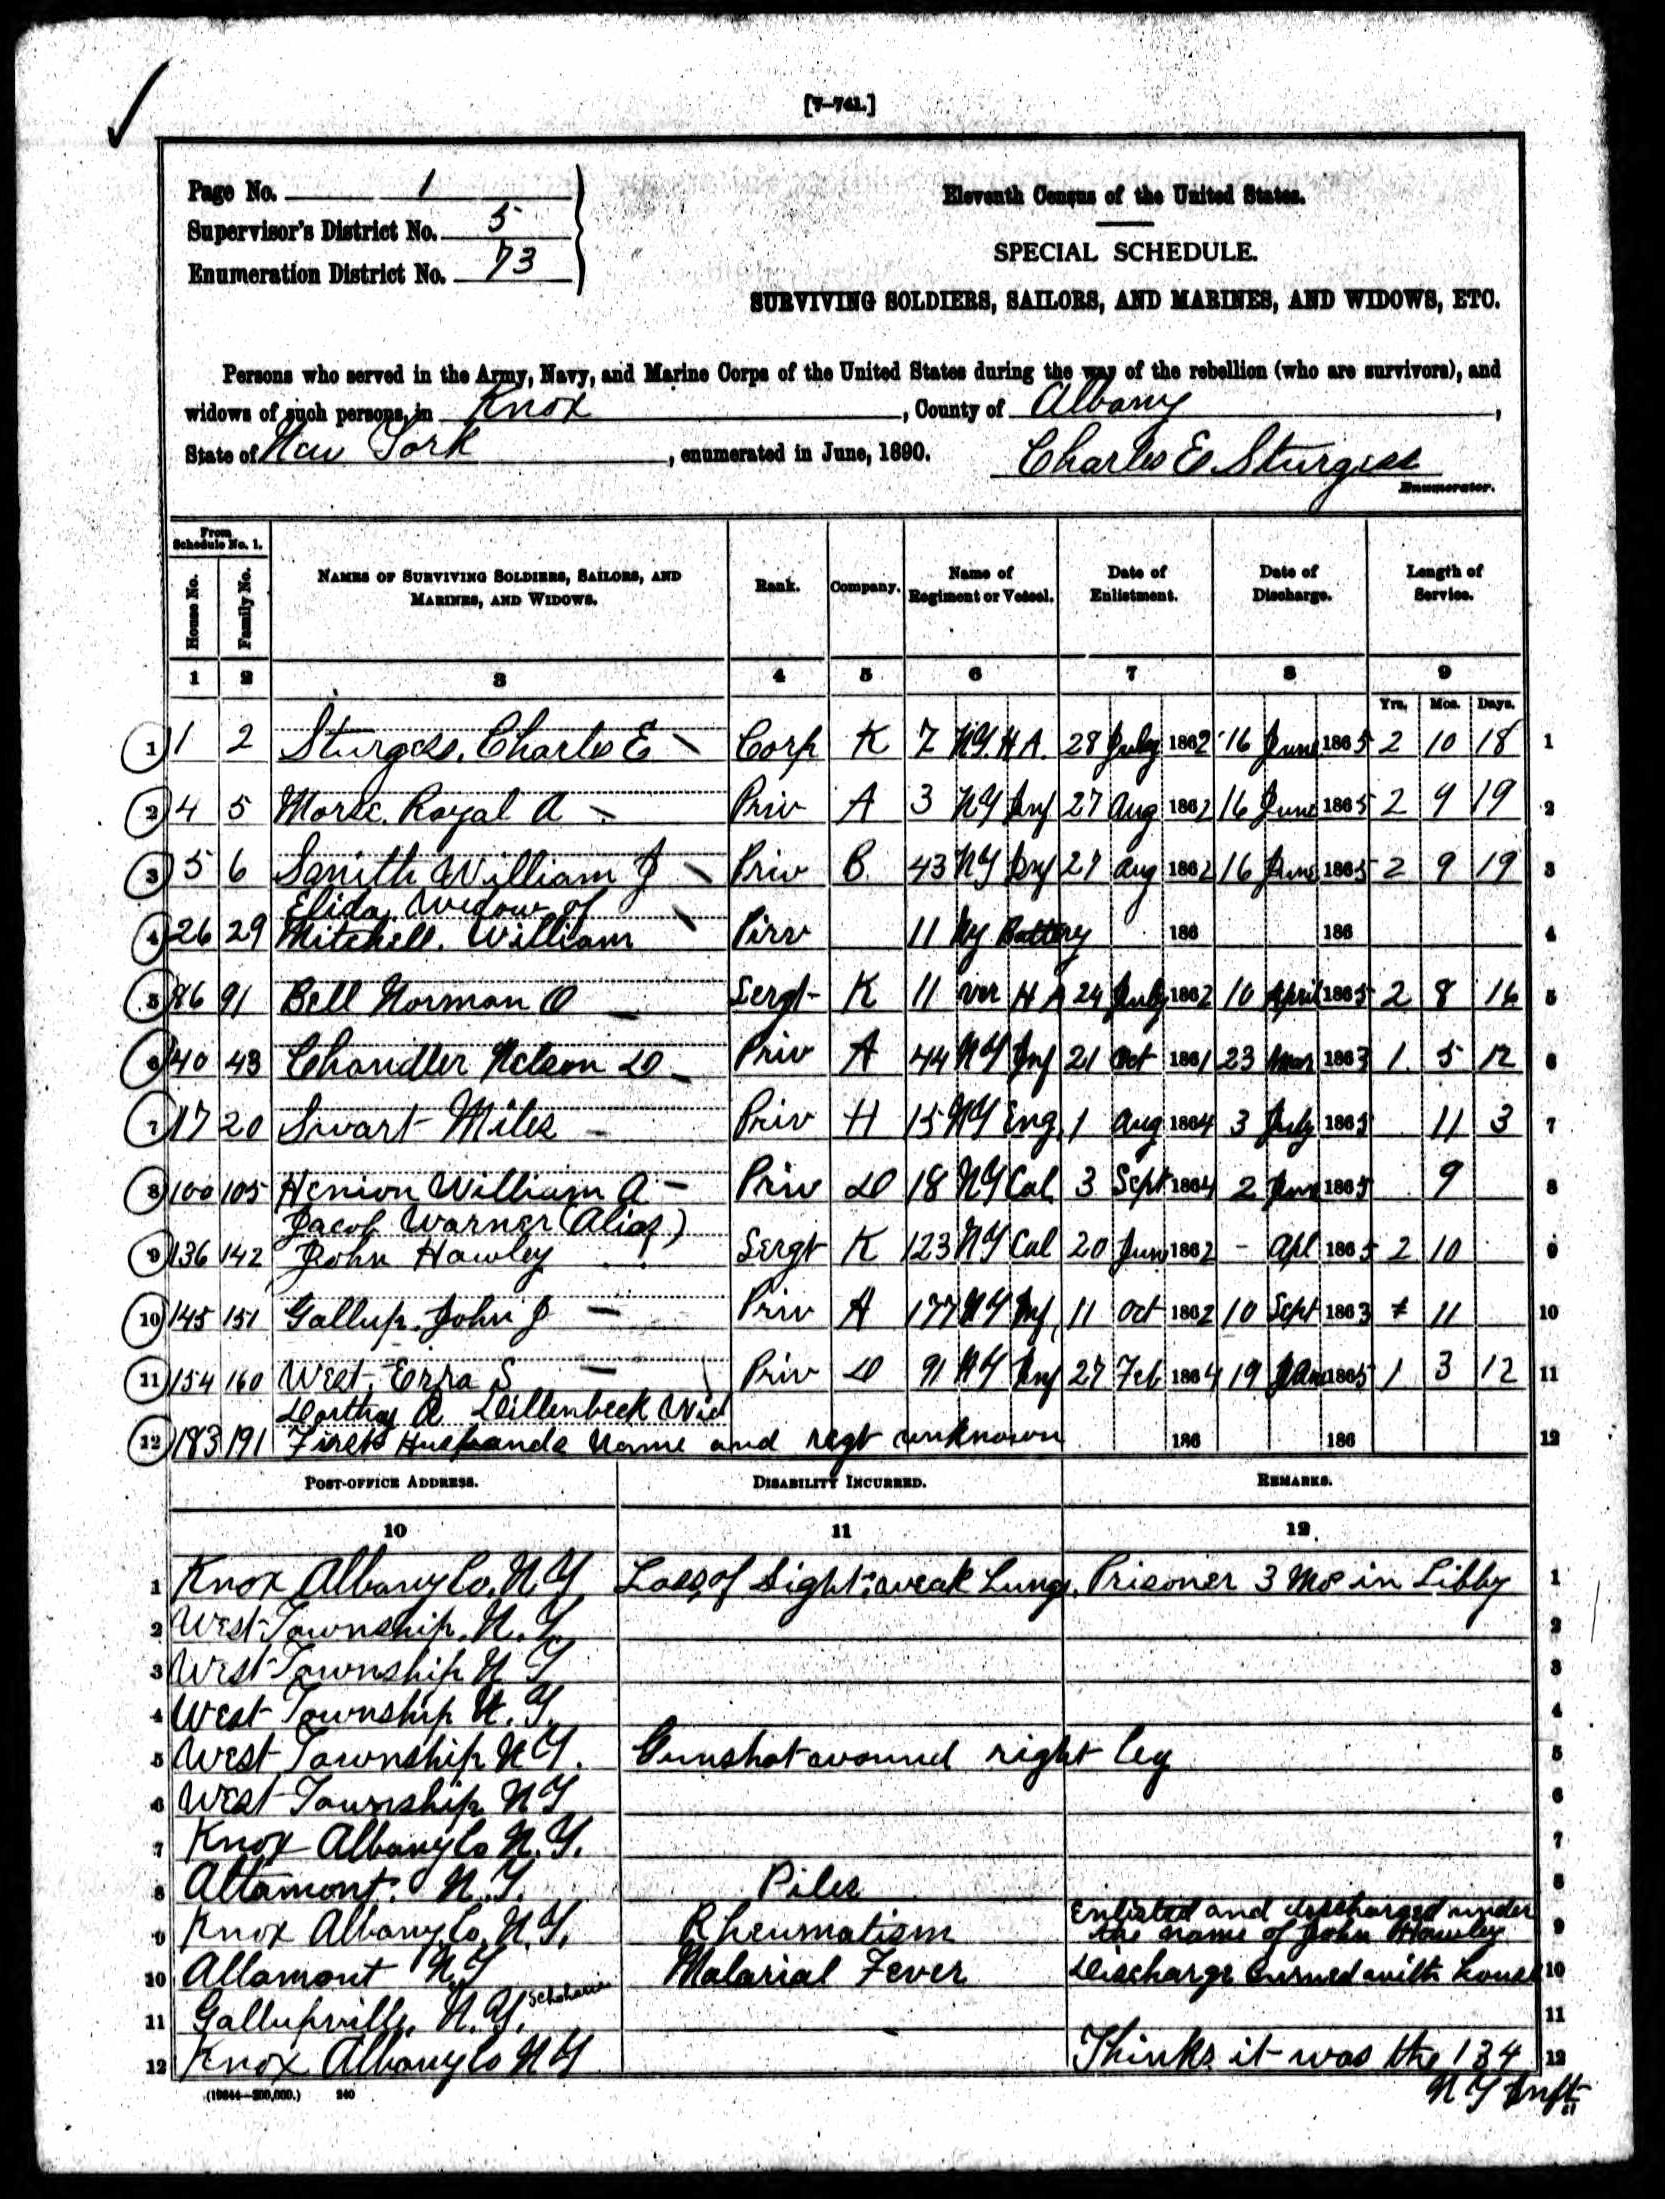 [7-741.]
Page No. 1
Supervisor's District No. 5
Enumeration District No. 73
Eleventh Census of the United States.
SPECIAL SCHEDULE.
SURVIVING SOLDIERS, SAILORS, AND MARINES, AND WIDOWS, ETC.
Persons who served in the Army, Navy, and Marine Corps of the United States during the war of the rebellion (who are survivors), and
widows of such persons, in Knox, County of Albany,
State of New York, enumerated in June, 1890. Charles E Sturgess
Enumerator.
From Schedule No. 1.
House No. Family No. NAMES OF SURVIVING SOLDIERS, SAILORS, AND MARINES, AND WIDOWS. Rank. Company. Name of Regiment or Vessel. Date of Enlistment. Date of Discharge. Length of Service.
1 2 3 4 5 6 7 8 9
Yrs. Mos. Days.
1 1 2 Sturgess, Charles E Corp K 7 NY. H A. 28 July 1862 16 June 1865 2 10 18 1
2 4 5 Morse, Royal A Priv A 3 NY Inf 27 Aug 1862 16 June 1865 2 9 19 2
3 5 6 Smith William J Priv B 43 NY Inf 27 Aug 1862 16 June 1865 2 9 19 3
Elida, Widow of
4 26 29 Mitchell, William Pirv 11 Ny Battery 186 186 4
5 86 91 Bell Norman O Sergt K 11 ver H A 24 July 1862 10 April 1865 2 8 16 5
6 40 43 Chandler Nelson D Priv A 44 NY Inf 21 Oct 1861 23 Mar 1863 1 5 12 6
7 17 20 Swart Miles Priv H 15 NY Eng. 1 Aug 1864 3 July 1865 11 3 7
8 100 105 Henion William A Priv D 18 NY Cal 3 Sept 1864 2 June 1865 9 8
Jacob Warner (Alias)
9 136 142 John Hawley Sergt K 123 NY Cal 20 Jun 1862 - Apl 1865 2 10 9
10 145 151 Gallup, John J Priv A 177 NY Inf, 11 Oct 1862 10 Sept 1863 11 10
11 154 160 West, Ezra S Priv D 91 NY Inf 27 Feb 1864 19 1865 1 3 12 11
Dorthy A Dillenbeck Wid
12 183 191 First Husbands Name and regt unknown 186 186 12
POST-OFFICE ADDRESS. DISABILITY INCURRED. REMARKS.
10 11 12
1 Knox Albany Co. N Y Loss of Sight: weak Lungs. Prisoner 3 Mo in Libby 1
2 West Township. N. Y. 2
3 West Township N Y 3
4 West Township N. Y. 4
5 West Township N Y. Gunshot wound right leg 5
6 West Township N Y 6
7 Knox Albany Co N. Y. 7
8 Altamont. N. Y. Piles 8
9 Knox Albany Co. N. Y. Rheumatism Enlisted and discharged under the name of John Hawley 9
10 Altamont N. Y Malarial Fever Discharge burned with house 10
11 Gallupville. N. Y. Schoharie 11
12 Knox Albany Co N Y Thinks it was the 134 12
N Y Inft
(19644—200,000.) 240